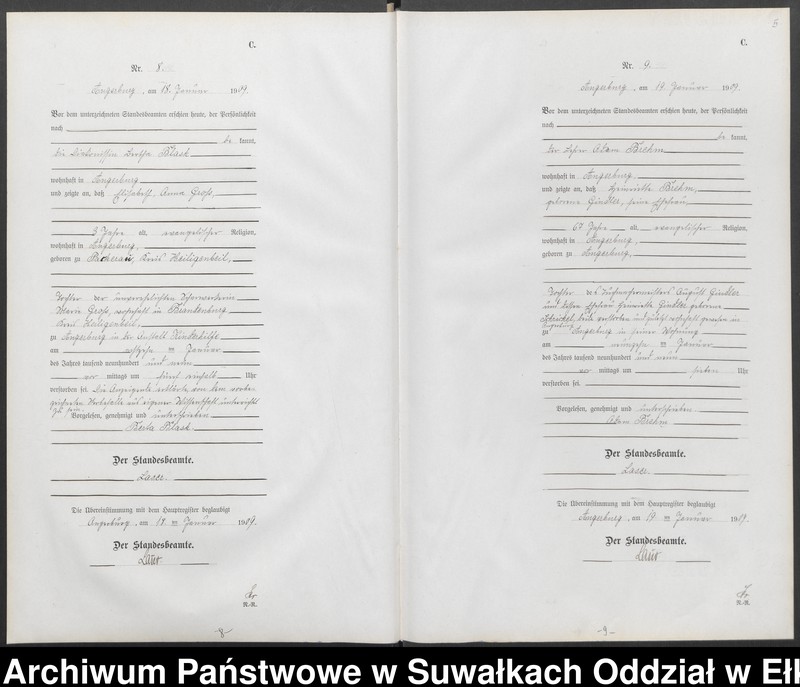 C.
Nr. 8.
Angerburg, am 18. Januar 1909.
Vor dem unterzeichneten Standesbeamten erschien heute, der Persönlichkeit
nach
be kannt,
die Diakonissin Bertha Blask
wohnhaft in Angerburg
und zeigte an, daß Elisabeth Anna Gross,
3 Jahre alt, evangelischer Religion,
wohnhaft in Angerburg,
geboren zu Kreis Heiligenbeil,
Tochter der unverehelichten
Marie Gross, wohnhaft in Brandenburg
Kreis Heiligenbeil,
zu Angerburg in der Anstalt
am Januar
des Jahres tausend neunhundert und neun
vor mittags um fünf einhalb Uhr
verstorben sei. Die Anzeigende erklärte, von dem vorbe-
aus eigener Wissenschaft unterrichtet
zu sein.
Vorgelesen, genehmigt und unterschrieben
Berta Blask
Der Standesbeamte.
Laser.
Die Übereinstimmung mit dem Hauptregister beglaubigt
Angerburg, am 18 ten Januar 1909.
Der Standesbeamte.
N.-R.
-8-
5
C.
Nr. 9.
Angerburg, am 19. Januar 1909.
Vor dem unterzeichneten Standesbeamten erschien heute, der Persönlichkeit
nach
be kannt,
der Adam Brehm
wohnhaft in Angerburg,
und zeigte an, daß Henriette Brehm,
geborene Ginkler, seine Ehefrau,
67 Jahre alt, evangelischer Religion,
wohnhaft in Angerburg,
geboren zu Angerburg,
Tochter des August Ginkler
und dessen Ehefrau Henriette Ginkler geborene
beide verstorben und zuletzt wohnhaft gewesen in
Angerburg
zu Angerburg in seiner Wohnung
am ten Januar
des Jahres tausend neunhundert und neun
vor mittags um sieben Uhr
verstorben sei.
Vorgelesen, genehmigt und unterschrieben
Adam Brehm
Der Standesbeamte.
Laser.
Die Übereinstimmung mit dem Hauptregister beglaubigt
Angerburg, am 19 ten Januar 1909.
Der Standesbeamte.
N.-R.
-9-
Archiwum Państwowe w Suwałkach Oddział w Ełk